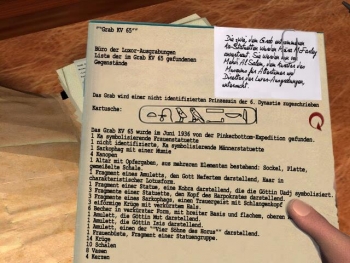 "Grab KV 65"
Büro der Luxor-Ausgrabungen
Liste der im Grab KV 65 gefundenen
Gegenstände
Die zwei, dem Grab entnommenen
Ka-Statuetten wurden
Sie werden nun von
Direktor der Luxor-Ausgrabungen,
untersucht.
Das Grab wird einer nicht identifizierten Prinzessin der 6. Dynastie zugeschrieben
Kartusche:
Das Grab KV 65 wurde im Juni 1936 von der Pinkerbottom-Expedition gefunden.
1 Ka symbolisierende Frauenstatuette
1 nicht identifizierte, Ka symbolisierende Männerstatuette
1 Sarkophag mit einer Mumie
4 Kanopen
1 Altar mit Opfergaben, aus mehreren Elementen bestehend: Sockel, Platte,
gemeißelte Schale.
1 Fragment eines Amuletts, den Gott Nefertem darstellend, Haar in
charakteristischer Lotusform.
1 Fragment einer Statue, eine Kobra darstellend, die die Göttin Uadj symbolisiert.
1 Fragment einer Statuette, den Kopf des Harpokrates darstellend.
1 Fragment eines Sarkophags, einen Trauergeist mit Schlangenkopf
1 eiförmige Krüge mit verkürztem Hals.
1 Becher in verkürzter Form, mit breiter Basis und flachem, oberen
1 Amulett, die Göttin Mut darstellend.
1 Amulett, die Göttin Isis darstellend.
1 Amulett, einen der ""Vier Söhne des Horus"" darstellend.
1 Frauenbüste, Fragment einer Statuengruppe.
14 Krüge
10 Schalen
8 Vasen
4 Kerzen